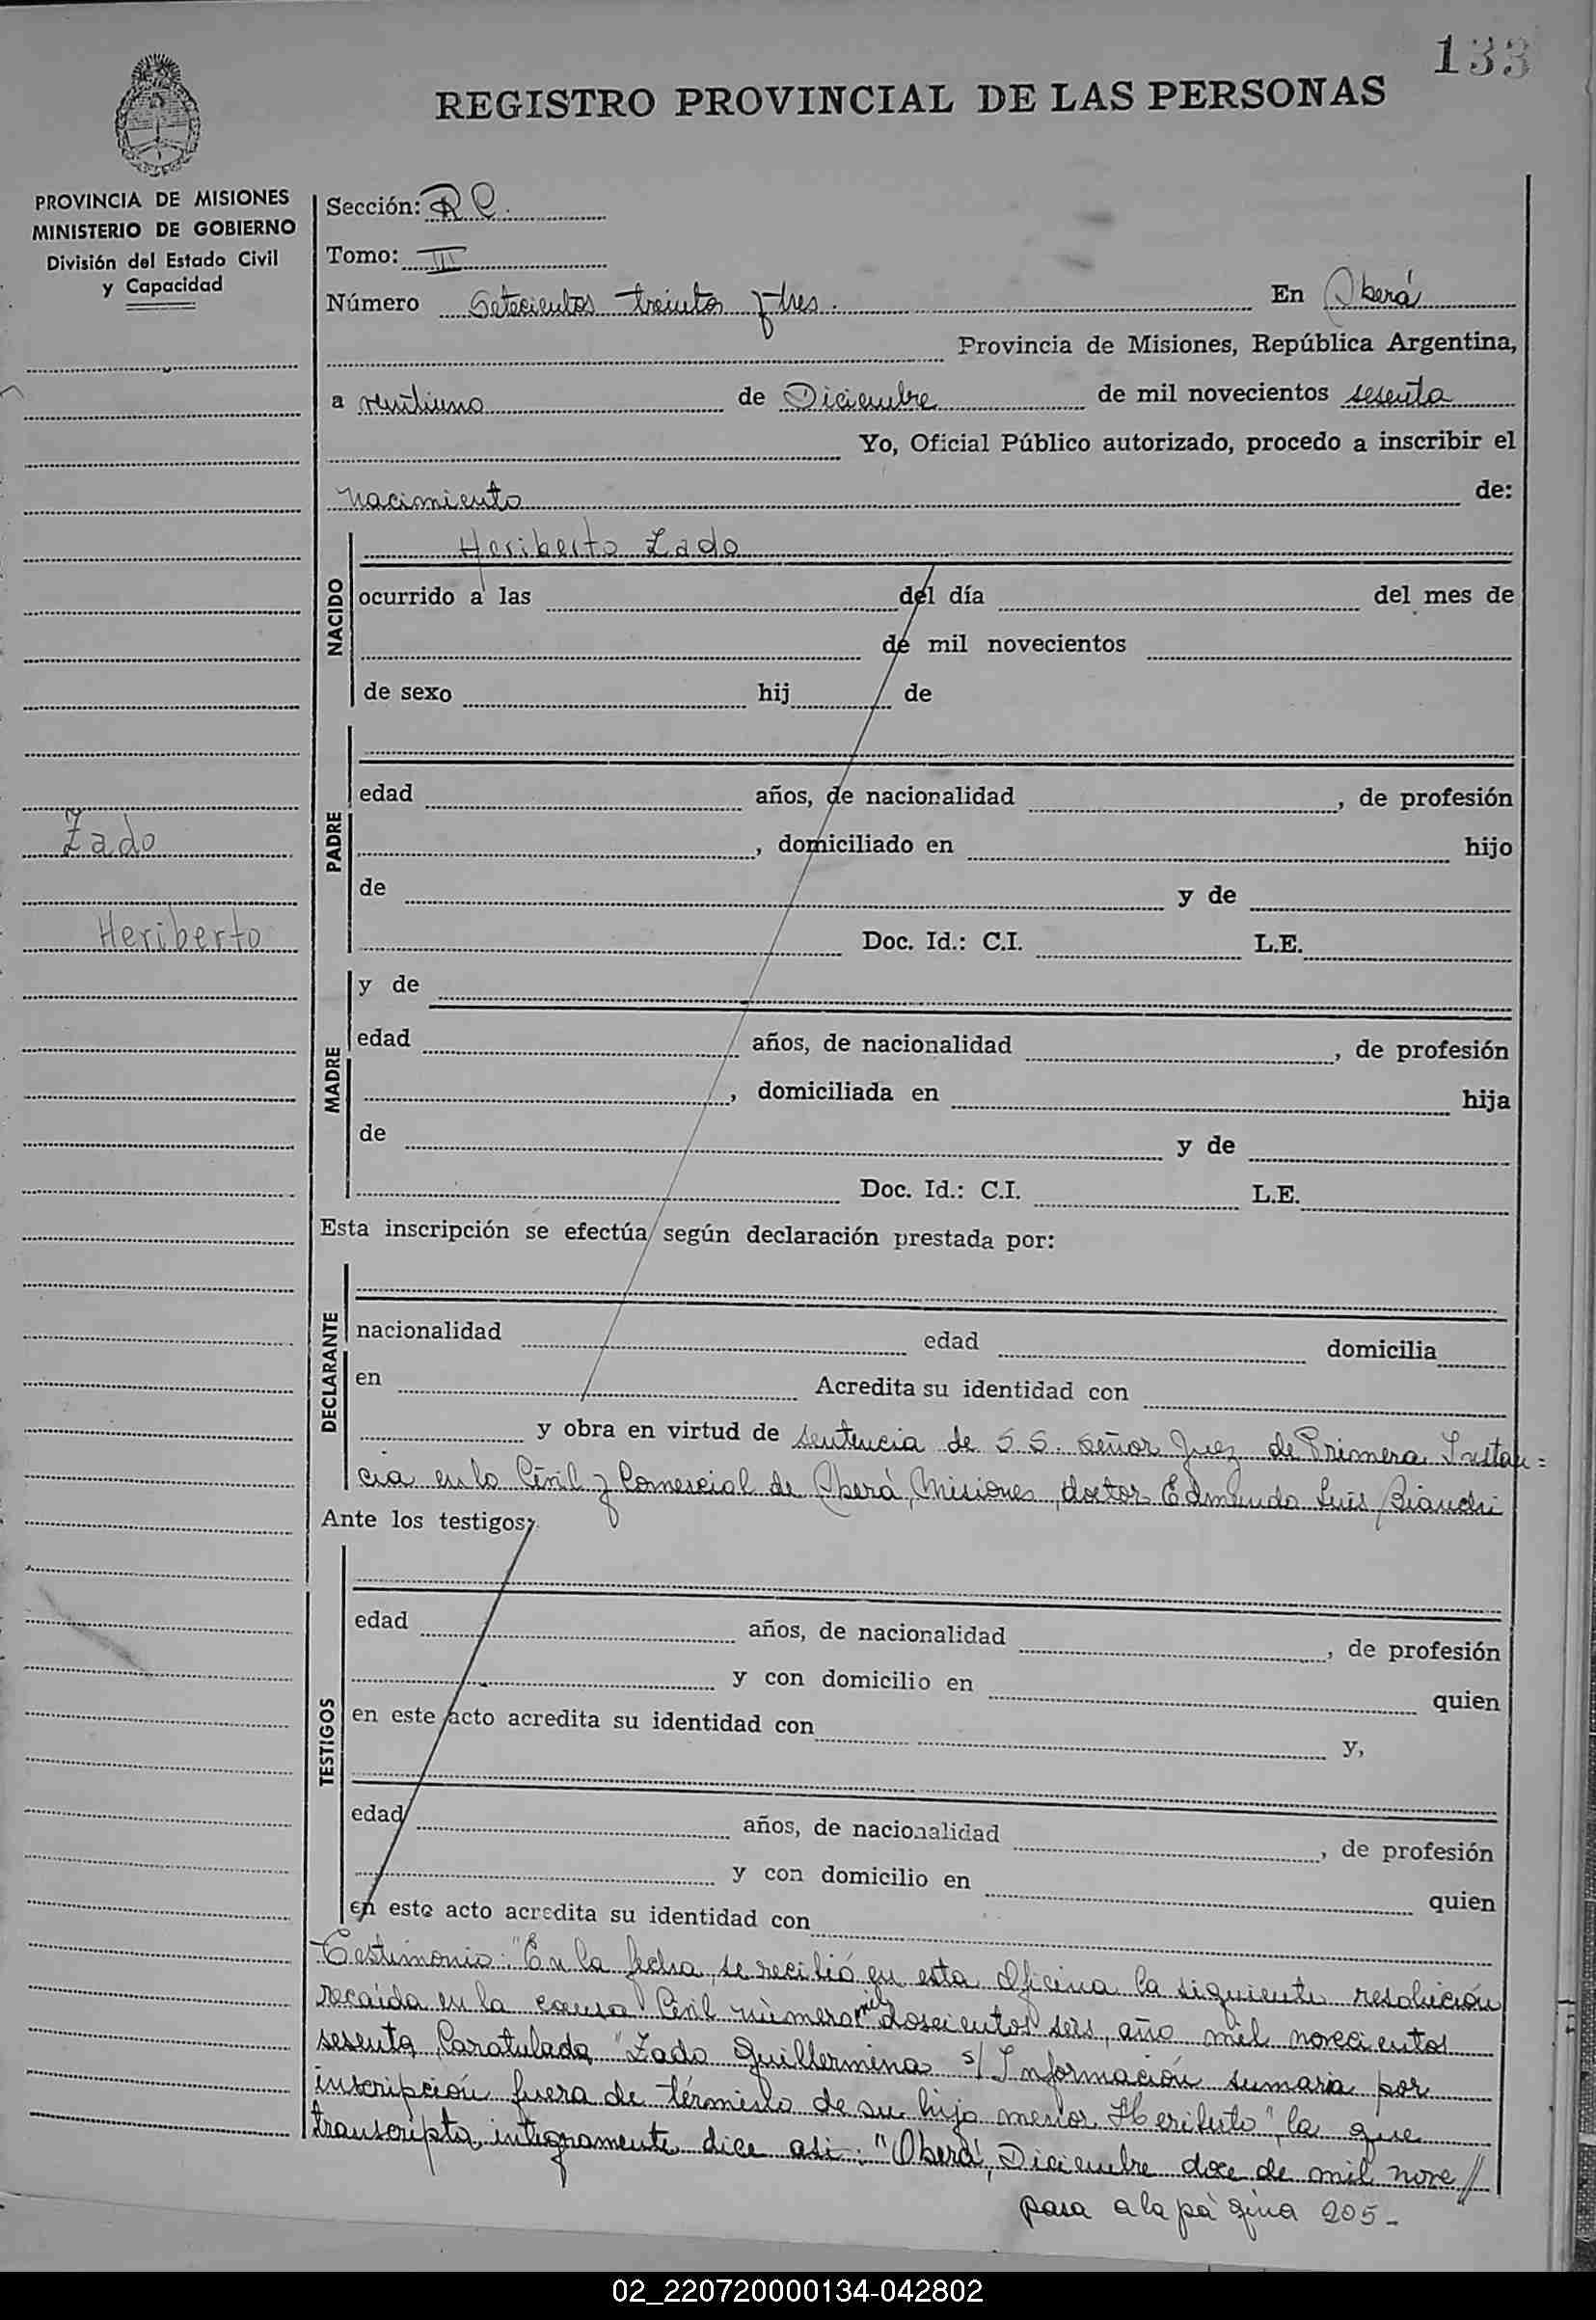 133
REGISTRO PROVINCIAL DE LAS PERSONAS
PROVINCIA DE MISIONES
MINISTERIO DE GOBIERNO
División del Estado Civil
y Capacidad
Zado
Heriberto
Sección: R C.
Tomo: III
Número Setecientos treinta y tres. En Oberá
Provincia de Misiones, República Argentina,
a veintiuno de Diciembre de mil novecientos sesenta
Yo, Oficial Público autorizado, procedo a inscribir el
nacimiento de:
NACIDO
Heriberto Zado
ocurrido a las del día del mes de
de mil novecientos
de sexo hij de
PADRE
edad años, de nacionalidad , de profesión
, domiciliado en hijo
de y de
Doc. Id.: C.I. L.E.
MADRE
y de
edad años, de nacionalidad , de profesión
, domiciliada en hija
de y de
Doc. Id.: C.I. L.E.
Esta inscripción se efectúa según declaración prestada por:
DECLARANTE
nacionalidad edad domicilia
en Acredita su identidad con
y obra en virtud de sentencia de S.S. Señor Juez de Primera Instan=
cia en lo Civil y Comercial de Oberá, Misiones, doctor Edmundo Luis Bianchi
Ante los testigos:
TESTIGOS
edad años, de nacionalidad , de profesión
y con domicilio en quien
en este acto acredita su identidad con y,
edad años, de nacionalidad , de profesión
y con domicilio en quien
en este acto acredita su identidad con
Testimonio: "En la fecha se recibió en esta Oficina la siguiente resolución
recaída en la causa Civil número mil doscientos seis, año mil novecientos
sesenta, Caratulada "Zado Guillermina s/ Información sumaria por
inscripción fuera de término de su hijo menor Heriberto", la que
transcripta integramente dice asi: "Oberá, Diciembre doce de mil nove//
pasa a la página 205-
02_220720000134-042802